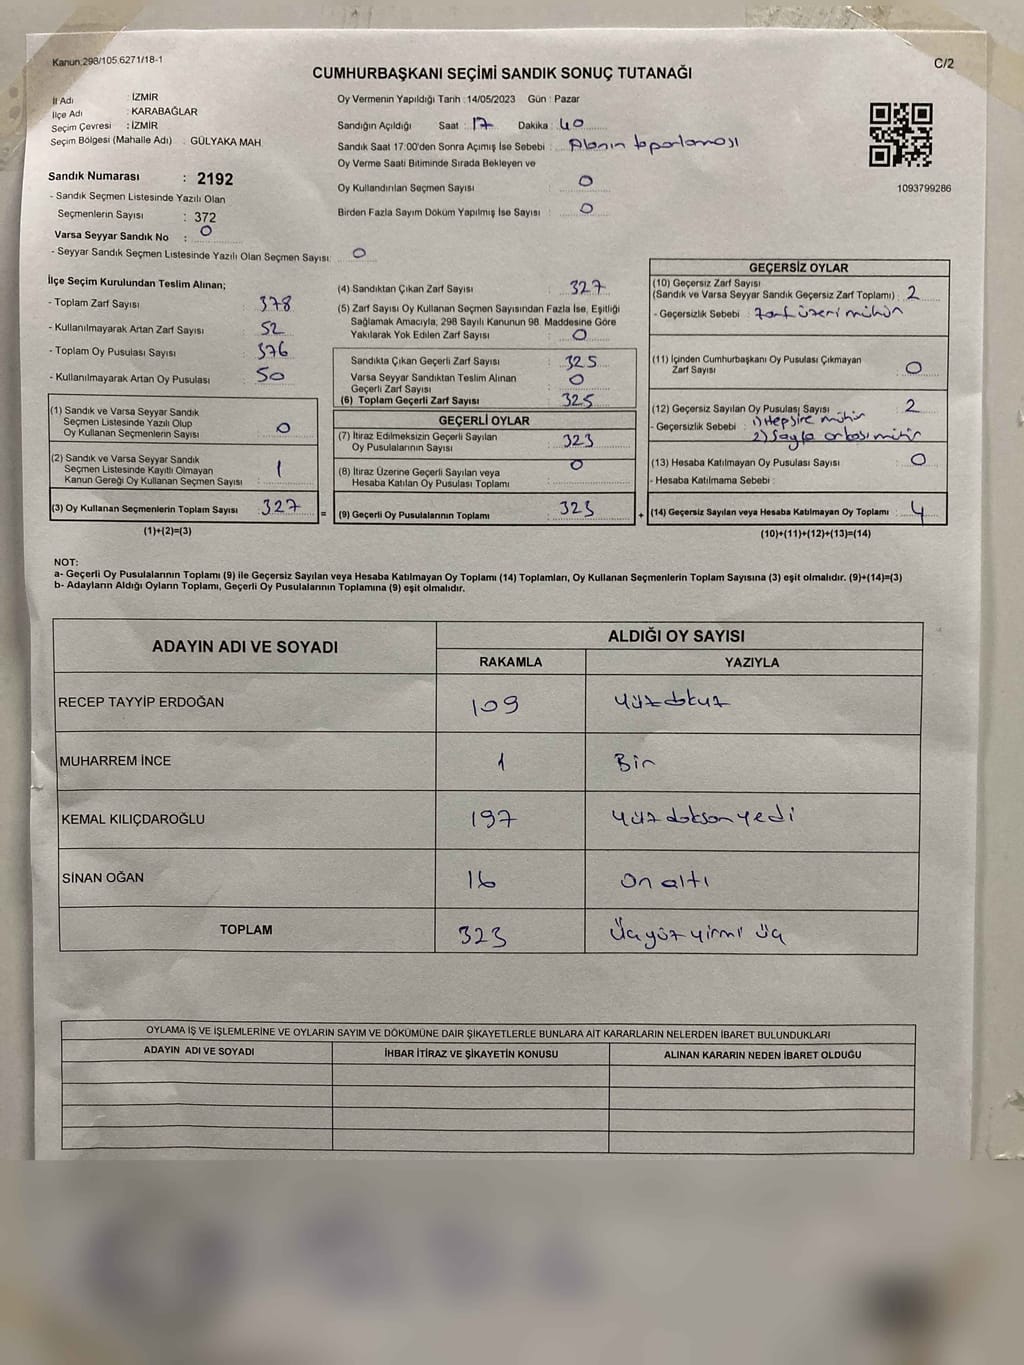 Kanun:298/105.6271/18-1
C/2
CUMHURBAŞKANI SEÇİMİ SANDIK SONUÇ TUTANAĞI
İl Adı : İZMİR
İlçe Adı : KARABAĞLAR
Seçim Çevresi : İZMİR
Seçim Bölgesi (Mahalle Adı) : GÜLYAKA MAH.
Sandık Numarası : 2192
- Sandık Seçmen Listesinde Yazılı Olan
Seçmenlerin Sayısı : 372
Varsa Seyyar Sandık No : 0
- Seyyar Sandık Seçmen Listesinde Yazılı Olan Seçmen Sayısı: 0
Oy Vermenin Yapıldığı Tarih : 14/05/2023 Gün : Pazar
Sandığın Açıldığı Saat : 17 Dakika : 40
Sandık Saat 17:00'den Sonra Açımış İse Sebebi : Alanın toparlaması
Oy Verme Saati Bitiminde Sırada Bekleyen ve
Oy Kullandırılan Seçmen Sayısı : 0
Birden Fazla Sayım Döküm Yapılmış İse Sayısı : 0
1093799286
İlçe Seçim Kurulundan Teslim Alınan;
- Toplam Zarf Sayısı : 378
- Kullanılmayarak Artan Zarf Sayısı : 52
- Toplam Oy Pusulası Sayısı : 376
- Kullanılmayarak Artan Oy Pusulası : 50
(1) Sandık ve Varsa Seyyar Sandık
Seçmen Listesinde Yazılı Olup
Oy Kullanan Seçmenlerin Sayısı : 0
(2) Sandık ve Varsa Seyyar Sandık
Seçmen Listesinde Kayıtlı Olmayan
Kanun Gereği Oy Kullanan Seçmen Sayısı : 1
(3) Oy Kullanan Seçmenlerin Toplam Sayısı : 327
(1)+(2)=(3)
(4) Sandıktan Çıkan Zarf Sayısı : 327
(5) Zarf Sayısı Oy Kullanan Seçmen Sayısından Fazla İse, Eşitliği
Sağlamak Amacıyla, 298 Sayılı Kanunun 98. Maddesine Göre
Yakılarak Yok Edilen Zarf Sayısı : 0
Sandıkta Çıkan Geçerli Zarf Sayısı : 325
Varsa Seyyar Sandıktan Teslim Alınan
Geçerli Zarf Sayısı : 0
(6) Toplam Geçerli Zarf Sayısı : 325
GEÇERLİ OYLAR
(7) İtiraz Edilmeksizin Geçerli Sayılan
Oy Pusulalarının Sayısı : 323
(8) İtiraz Üzerine Geçerli Sayılan veya
Hesaba Katılan Oy Pusulası Toplamı : 0
= (9) Geçerli Oy Pusulalarının Toplamı : 323
GEÇERSİZ OYLAR
(10) Geçersiz Zarf Sayısı
(Sandık ve Varsa Seyyar Sandık Geçersiz Zarf Toplamı) : 2
- Geçersizlik Sebebi : Zarf üzeri mühür
(11) İçinden Cumhurbaşkanı Oy Pusulası Çıkmayan
Zarf Sayısı : 0
(12) Geçersiz Sayılan Oy Pusulası Sayısı : 2
- Geçersizlik Sebebi : 1) Hepsine mühür
2) Sayfa ortası mühür
(13) Hesaba Katılmayan Oy Pusulası Sayısı : 0
- Hesaba Katılmama Sebebi :
+ (14) Geçersiz Sayılan veya Hesaba Katılmayan Oy Toplamı : 4
(10)+(11)+(12)+(13)=(14)
NOT:
a- Geçerli Oy Pusulalarının Toplamı (9) ile Geçersiz Sayılan veya Hesaba Katılmayan Oy Toplamı (14) Toplamları, Oy Kullanan Seçmenlerin Toplam Sayısına (3) eşit olmalıdır. (9)+(14)=(3)
b- Adayların Aldığı Oyların Toplamı, Geçerli Oy Pusulalarının Toplamına (9) eşit olmalıdır.
ADAYIN ADI VE SOYADI ALDIĞI OY SAYISI
RAKAMLA YAZIYLA
RECEP TAYYİP ERDOĞAN 109 Yüz dokuz
MUHARREM İNCE 1 Bir
KEMAL KILIÇDAROĞLU 197 Yüz doksan yedi
SİNAN OĞAN 16 On altı
TOPLAM 323 Üçyüz yirmi üç
OYLAMA İŞ VE İŞLEMLERİNE VE OYLARIN SAYIM VE DÖKÜMÜNE DAİR ŞİKAYETLERLE BUNLARA AİT KARARLARIN NELERDEN İBARET BULUNDUKLARI
ADAYIN ADI VE SOYADI İHBAR İTİRAZ VE ŞİKAYETİN KONUSU ALINAN KARARIN NEDEN İBARET OLDUĞU